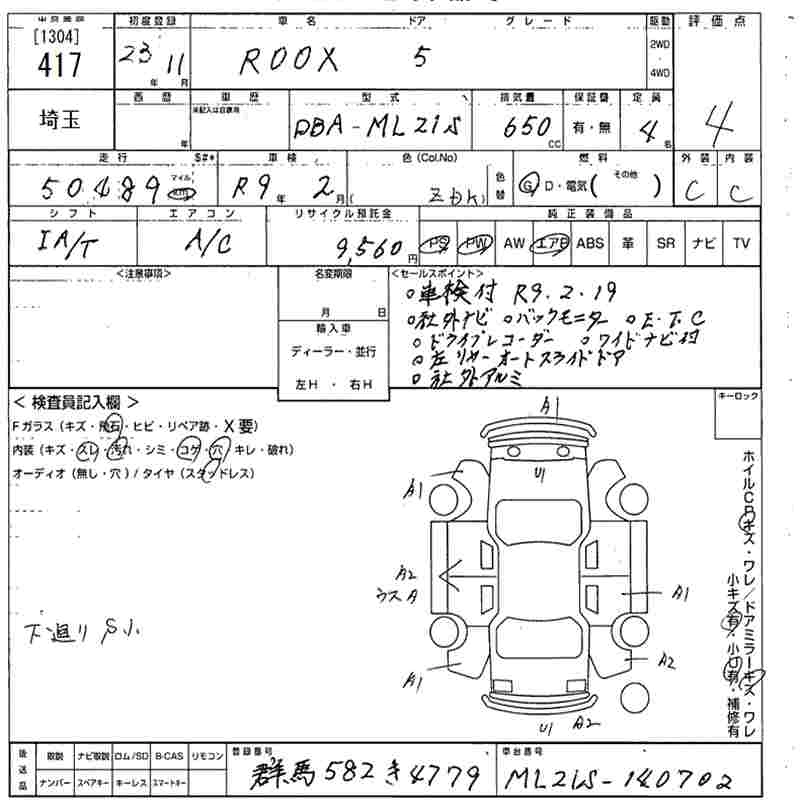 [1304]
417
初度登録
23 年 11 月
車名
ROOX
ドア
5
グレード
駆動
2WD
4WD
評価点
4
埼玉
西暦
年
車歴
未記入は自家用
型式
DBA-ML21S
排気量
650 CC
保証書
有・無
定員
4 名
走行
S#*
50489
マイル
km
車検
R9 年 2 月
色 (Col.No)
ZJK)
色替
燃料
G D・電気( その他 )
外装
C
内装
C
シフト
IA/T
エアコン
A/C
リサイクル預託金
9,560 円
純正装備品
PS PW AW エアB ABS 革 SR ナビ TV
<注意事項>
名変期限
月 日
輸入車
ディーラー・並行
左H・右H
<セールスポイント>
○車検付 R9.2.19
○社外ナビ ○バックモニター ○E.T.C
○ドライブレコーダー ○ワイドナビ付
○左リヤーオートスライドドア
○社外アルミ
キーロック
<検査員記入欄>
Fガラス(キズ・飛石・ヒビ・リペア跡・X要)
内装(キズ・スレ・汚れ・シミ・コゲ・穴・キレ・破れ)
オーディオ(無し・穴)/タイヤ(スタッドレス)
A1
U1
A1
A2
ウスA
A1
A1
A2
U1 A2
下廻り S小
ホイルCPキズ・ワレ/ドアミラーキズ・ワレ
小キズ有・小凹有・補修有
後送品
取説 ナビ取説 ロム/SD B-CAS リモコン
ナンバー スペアキー キーレス スマートキー
登録番号
群馬 582 き 4779
車台番号
ML21S-140702